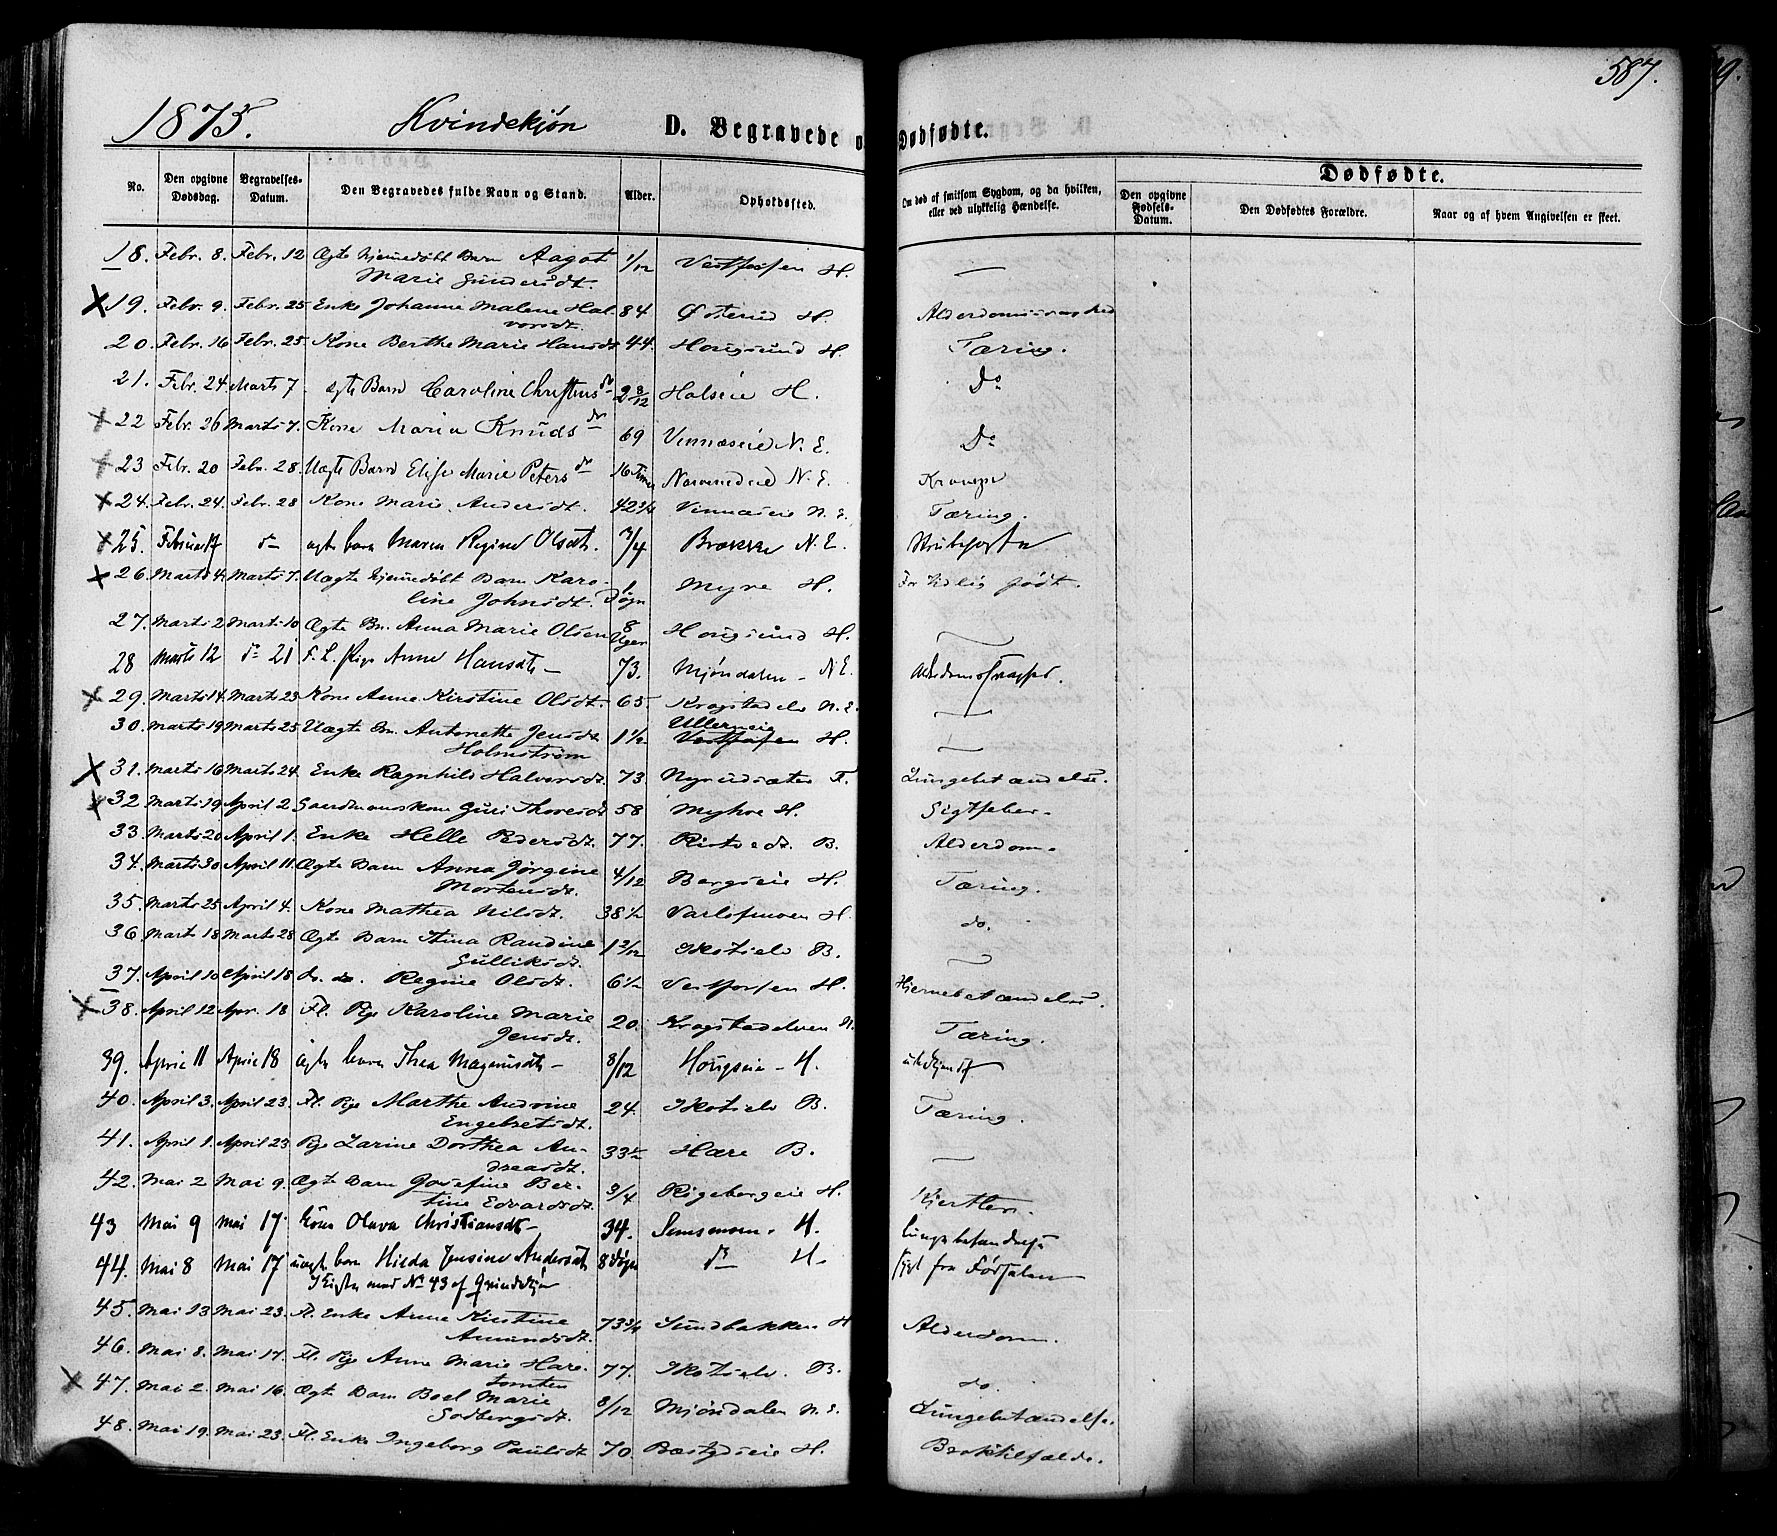 587.
1875. Kvindekjøn D. Begravede o. Dødfødte.
No. Den opgivne Dødsdag. Begravelses-Datum. Den Begravedes fulde Navn og Stand. Alder. Opholdssted. Om død af smitsom Sygdom, og da hvilken, eller ved ulykkelig Hændelse. Dødfødte. Den opgivne Fødsels-Datum. Den Dødfødtes Forældre. Naar og af hvem Angivelsen er skeet.
18. Febr. 8. Febr. 12 Ægte hjemmedøbt Barn Aagot 1/12 Vestfossen H. —
Marie Gundersdt.
19. Febr. 9. Febr. 25 Enke Johanne Malene Hal- 84 H. Alderdomssvaghed
vorsdt.
20. Febr. 16 Febr. 25. Kone Berthe Marie Hansdt 44. Hougsund H. Tæring.
21. Febr. 24 Marts 7. ægte Barn Caroline 2 8/12 Halseie H. Do
22 Febr. 26 Marts 7. Kone Maria Knudsdr 69 Vinnæseie N. E. Do
23 Febr. 20 Febr. 28. Uægte Barn Elise Marie Petersdr 16 Timer N. E. Krampe
24. Febr. 24. Febr. 28 Kone Marie Andersdt. 42 3/4 Vinnæseie N. E. Tæring.
25. Februar 17 do ægte barn Maren Regine Olsdt. 3/4 N. E. Strubehoste
26. Marts 4. Marts 7. Uægte hjemmedøbt Barn Karo- 1 Døgn Myre H. For tidlig født.
line Johnsdt.
27. Marts 2 Marts 10 Ægte Bn. Anna Marie Olsen 8 Uger Hougsund H. —
28 Marts 12 do 21 F. L. Pige Anne Hansdtr — 73. Mjøndalen - N. E. Alderdomssvaghed.
29. Marts 14. Marts 23 Kone Anne Kirstine Olsdt. 65 Krogstadelv N. E. —
30. Marts 19 Marts 25 Uægte Bn. Antonette Jensdt. 1 1/2 Ullerneie Vestfossen H. —
Holmstrøm
31. Marts 16 Marts 24. Enke Ragnhild Halvorsdt. 73 F. Lungebetændelse.
32. Marts 19 April 2. Gaardmandskone Guri Thoresdt 58 Myhre H. Gigtfeber.
33. Marts 20 April 1. Enke Helle Pedersdt. 77. B. Alderdom.
34. Marts 30 April 11. Ægte Barn Anna Jørgine 4/12 Bergseie H. Tæring.
Mortensdt.
35. Marts 25 April 4. Kone Mathea Nilsdt. 38 1/2 H. do.
36. Marts 18 Marts 28 Ægte Barn Stina Randine 1 2/12 Skotselv B. —
Gulliksdt.
37. April 10 April 18 do. do. Regine Olsdt. 6 1/2 Vestfossen H. Hjernebetændelse.
38. April 12 Apr. 18 Fl. Pge Karoline Marie 20. Krogstadelven N. Tæring.
Jensdt.
39. April 11 April 18 ægte barn Thea Magnusdtr — 8/12 Hougseie - H. ubekjendt
40. April 3. April 23. Fl. Pge Marthe Andrine 24. Skotselv B. Tæring.
Engebretsdt.
41. April 1. April 23 Pge Larine Dorthea An- 33 1/2 Hære B. —
dreasdt.
42. Mai 2 Mai 9. Ægte Barn Josefine Ber- 3/4 Rigebergeie H. Kjertler.
tine Edvardsdt.
43 Mai 9 Mai 17. Kone Olava Christiansdtr — 34. H. Lungebetændelse
44. Mai 8 Mai 17 uægte barn Hilda Jensine Andersdt 8 Døgn do H. sygt fra Fødselen
I Kiste med No 43 af Qvindekjøn
45. Mai 13 Mai 23. Fl. Enke Anne Kirstine 73 3/4 Sundbakken H Alderdom.
Amundsdt.
46. Mai 8. Mai 17. Fl. Pge Anne Marie Hare- 77. Skotselv. B. do.
tomten
47. Mai 2. Mai 16. Ægte Barn Boel Marie 8/12 Mjøndalen N. E. Lungebetændelse.
Solbergsdt.
48. Mai 19. Mai 23. Fl. Enke Ingeborg Paulsdt 70. H. Broktilfælde.